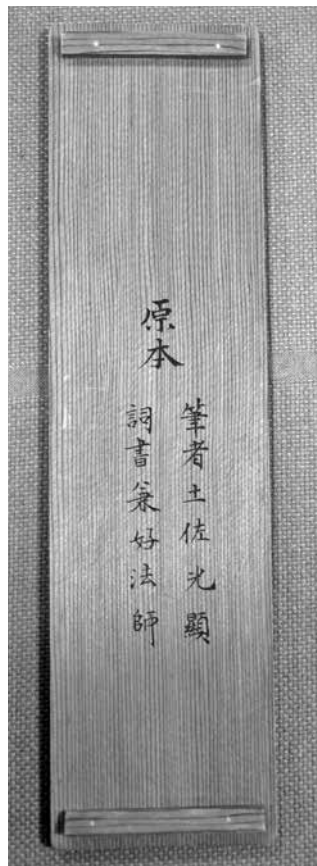 原本
筆者土佐光顯
詞書兼好法師